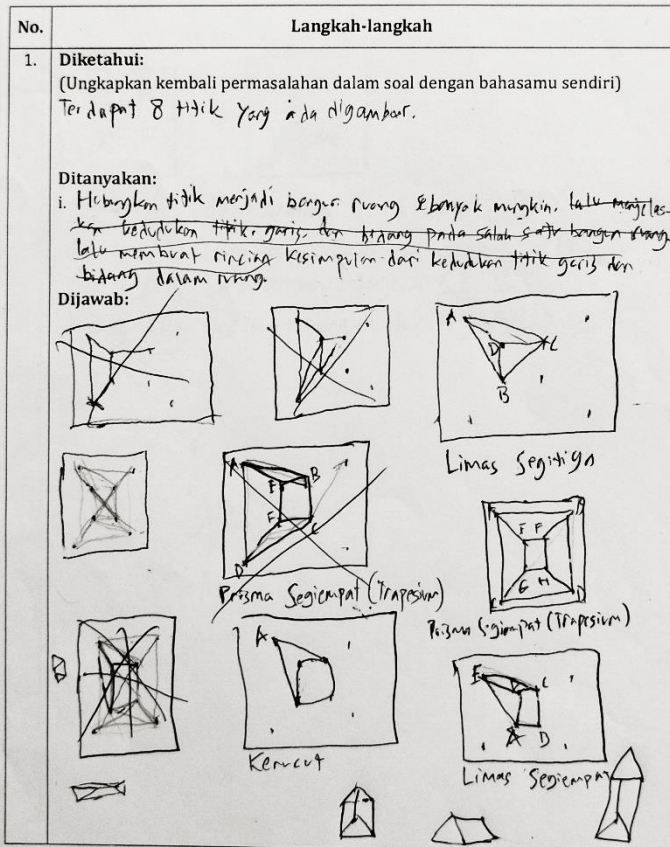 No. Langkah-langkah
1. Diketahui:
(Ungkapkan kembali permasalahan dalam soal dengan bahasamu sendiri)
Terdapat 8 titik yang ada digambar.
Ditanyakan:
i. Hubungkan titik menjadi bangun ruang sebanyak mungkin. lalu menjelas-
kan kedudukan titik, garis, dan bidang pada salah satu bangun ruang
lalu membuat rincing kesimpulan dari kedudukan titik garis dan
bidang dalam ruang.
Dijawab:
A D C
B
Limas Segitiga
A E B
F C
D
Prisma Segiempat (Trapesium)
F F B
G H D
Prisma Segiempat (Trapesium)
A
Kerucut
E B C
A D
Limas Segiempat